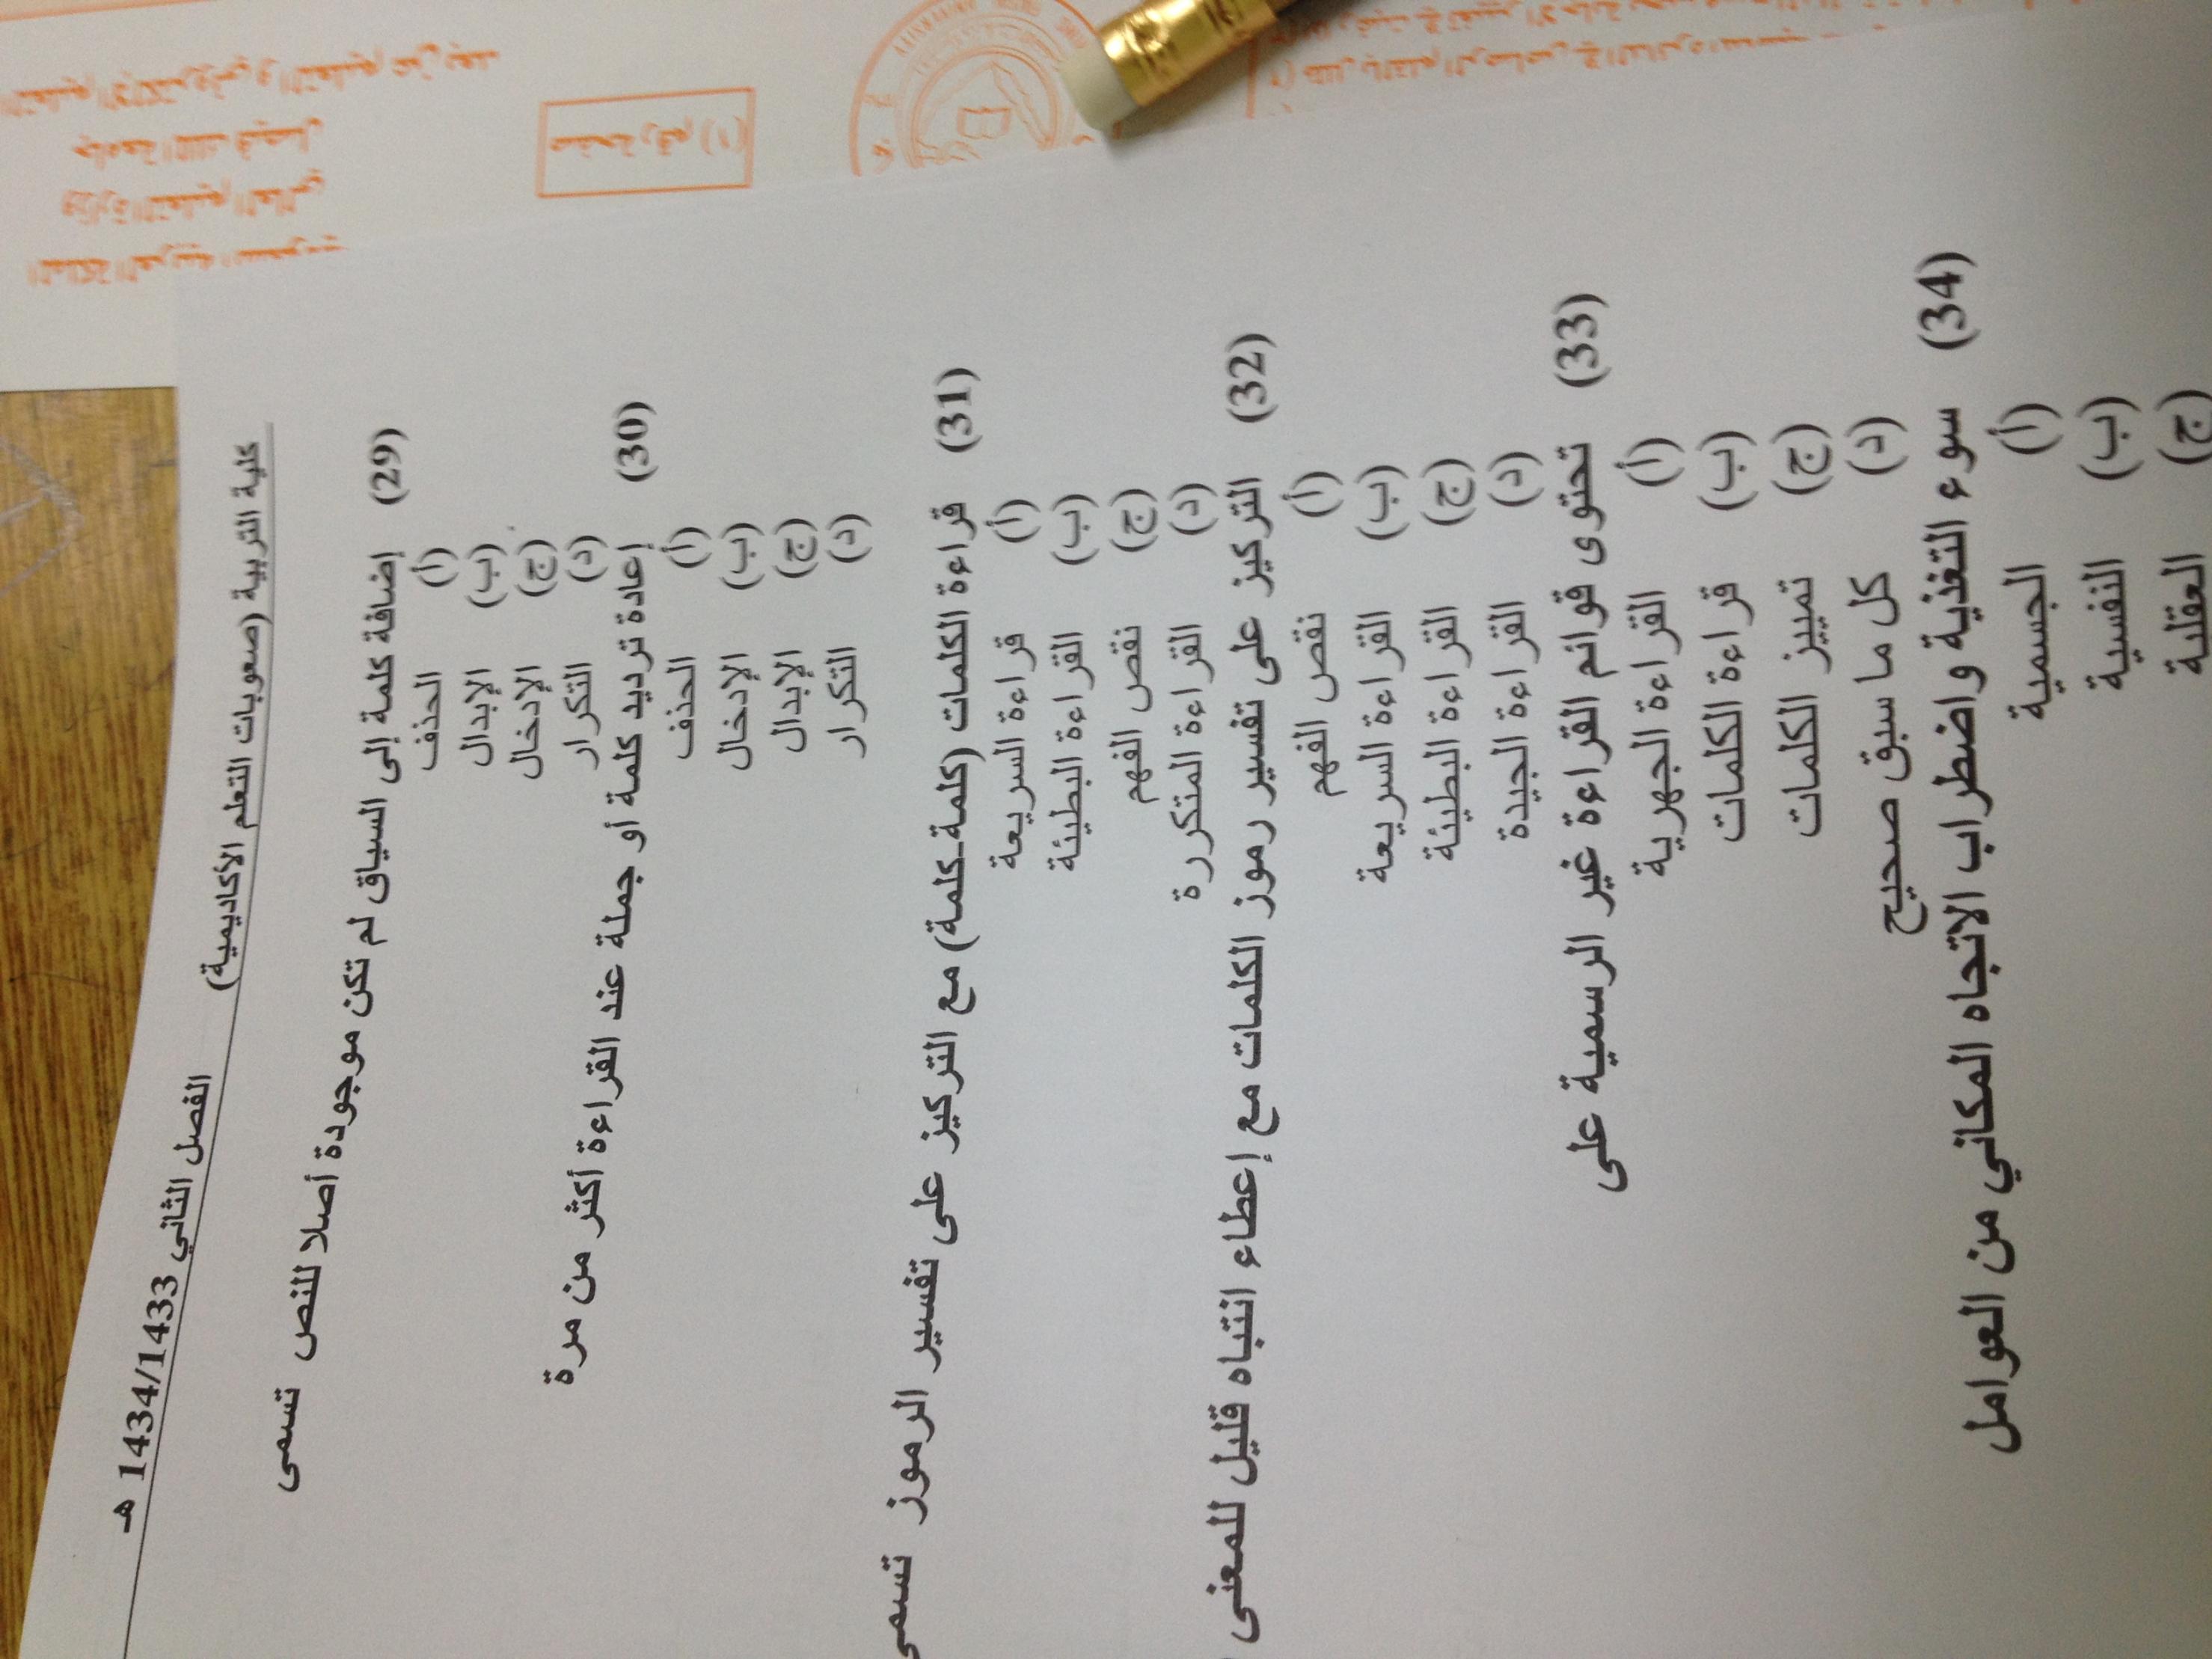 كلية التربية (صعوبات التعلم الأكاديمية) الفصل الثاني 1434/1433 هـ
(29) إضافة كلمة إلى السياق لم تكن موجودة أصلا للنص تسمى
(أ) الحذف
(ب) الإبدال
(ج) الإدخال
(د) التكرار
(30) إعادة ترديد كلمة أو جملة عند القراءة أكثر من مرة
(أ) الحذف
(ب) الإدخال
(ج) الإبدال
(د) التكرار
(31) قراءة الكلمات (كلمة-كلمة) مع التركيز على تفسير الرموز تسمى
(أ) قراءة السريعة
(ب) القراءة البطيئة
(ج) نقص الفهم
(د) القراءة المتكررة
(32) التركيز على تفسير رموز الكلمات مع إعطاء انتباه قليل للمعنى
(أ) نقص الفهم
(ب) القراءة السريعة
(ج) القراءة البطيئة
(د) القراءة الجيدة
(33) تحتوى قوائم القراءة غير الرسمية على
(أ) القراءة الجهرية
(ب) قراءة الكلمات
(ج) تمييز الكلمات
(د) كل ما سبق صحيح
(34) سوء التغذية واضطراب الاتجاه المكاني من العوامل
(أ) الجسمية
(ب) النفسية
(ج) العقلية
المملكة العربية السعودية
وزارة التعليم العالي
جامعة الملك فيصل
التعليم الإلكتروني والتعليم عن بعد
صفحة رقم (١)